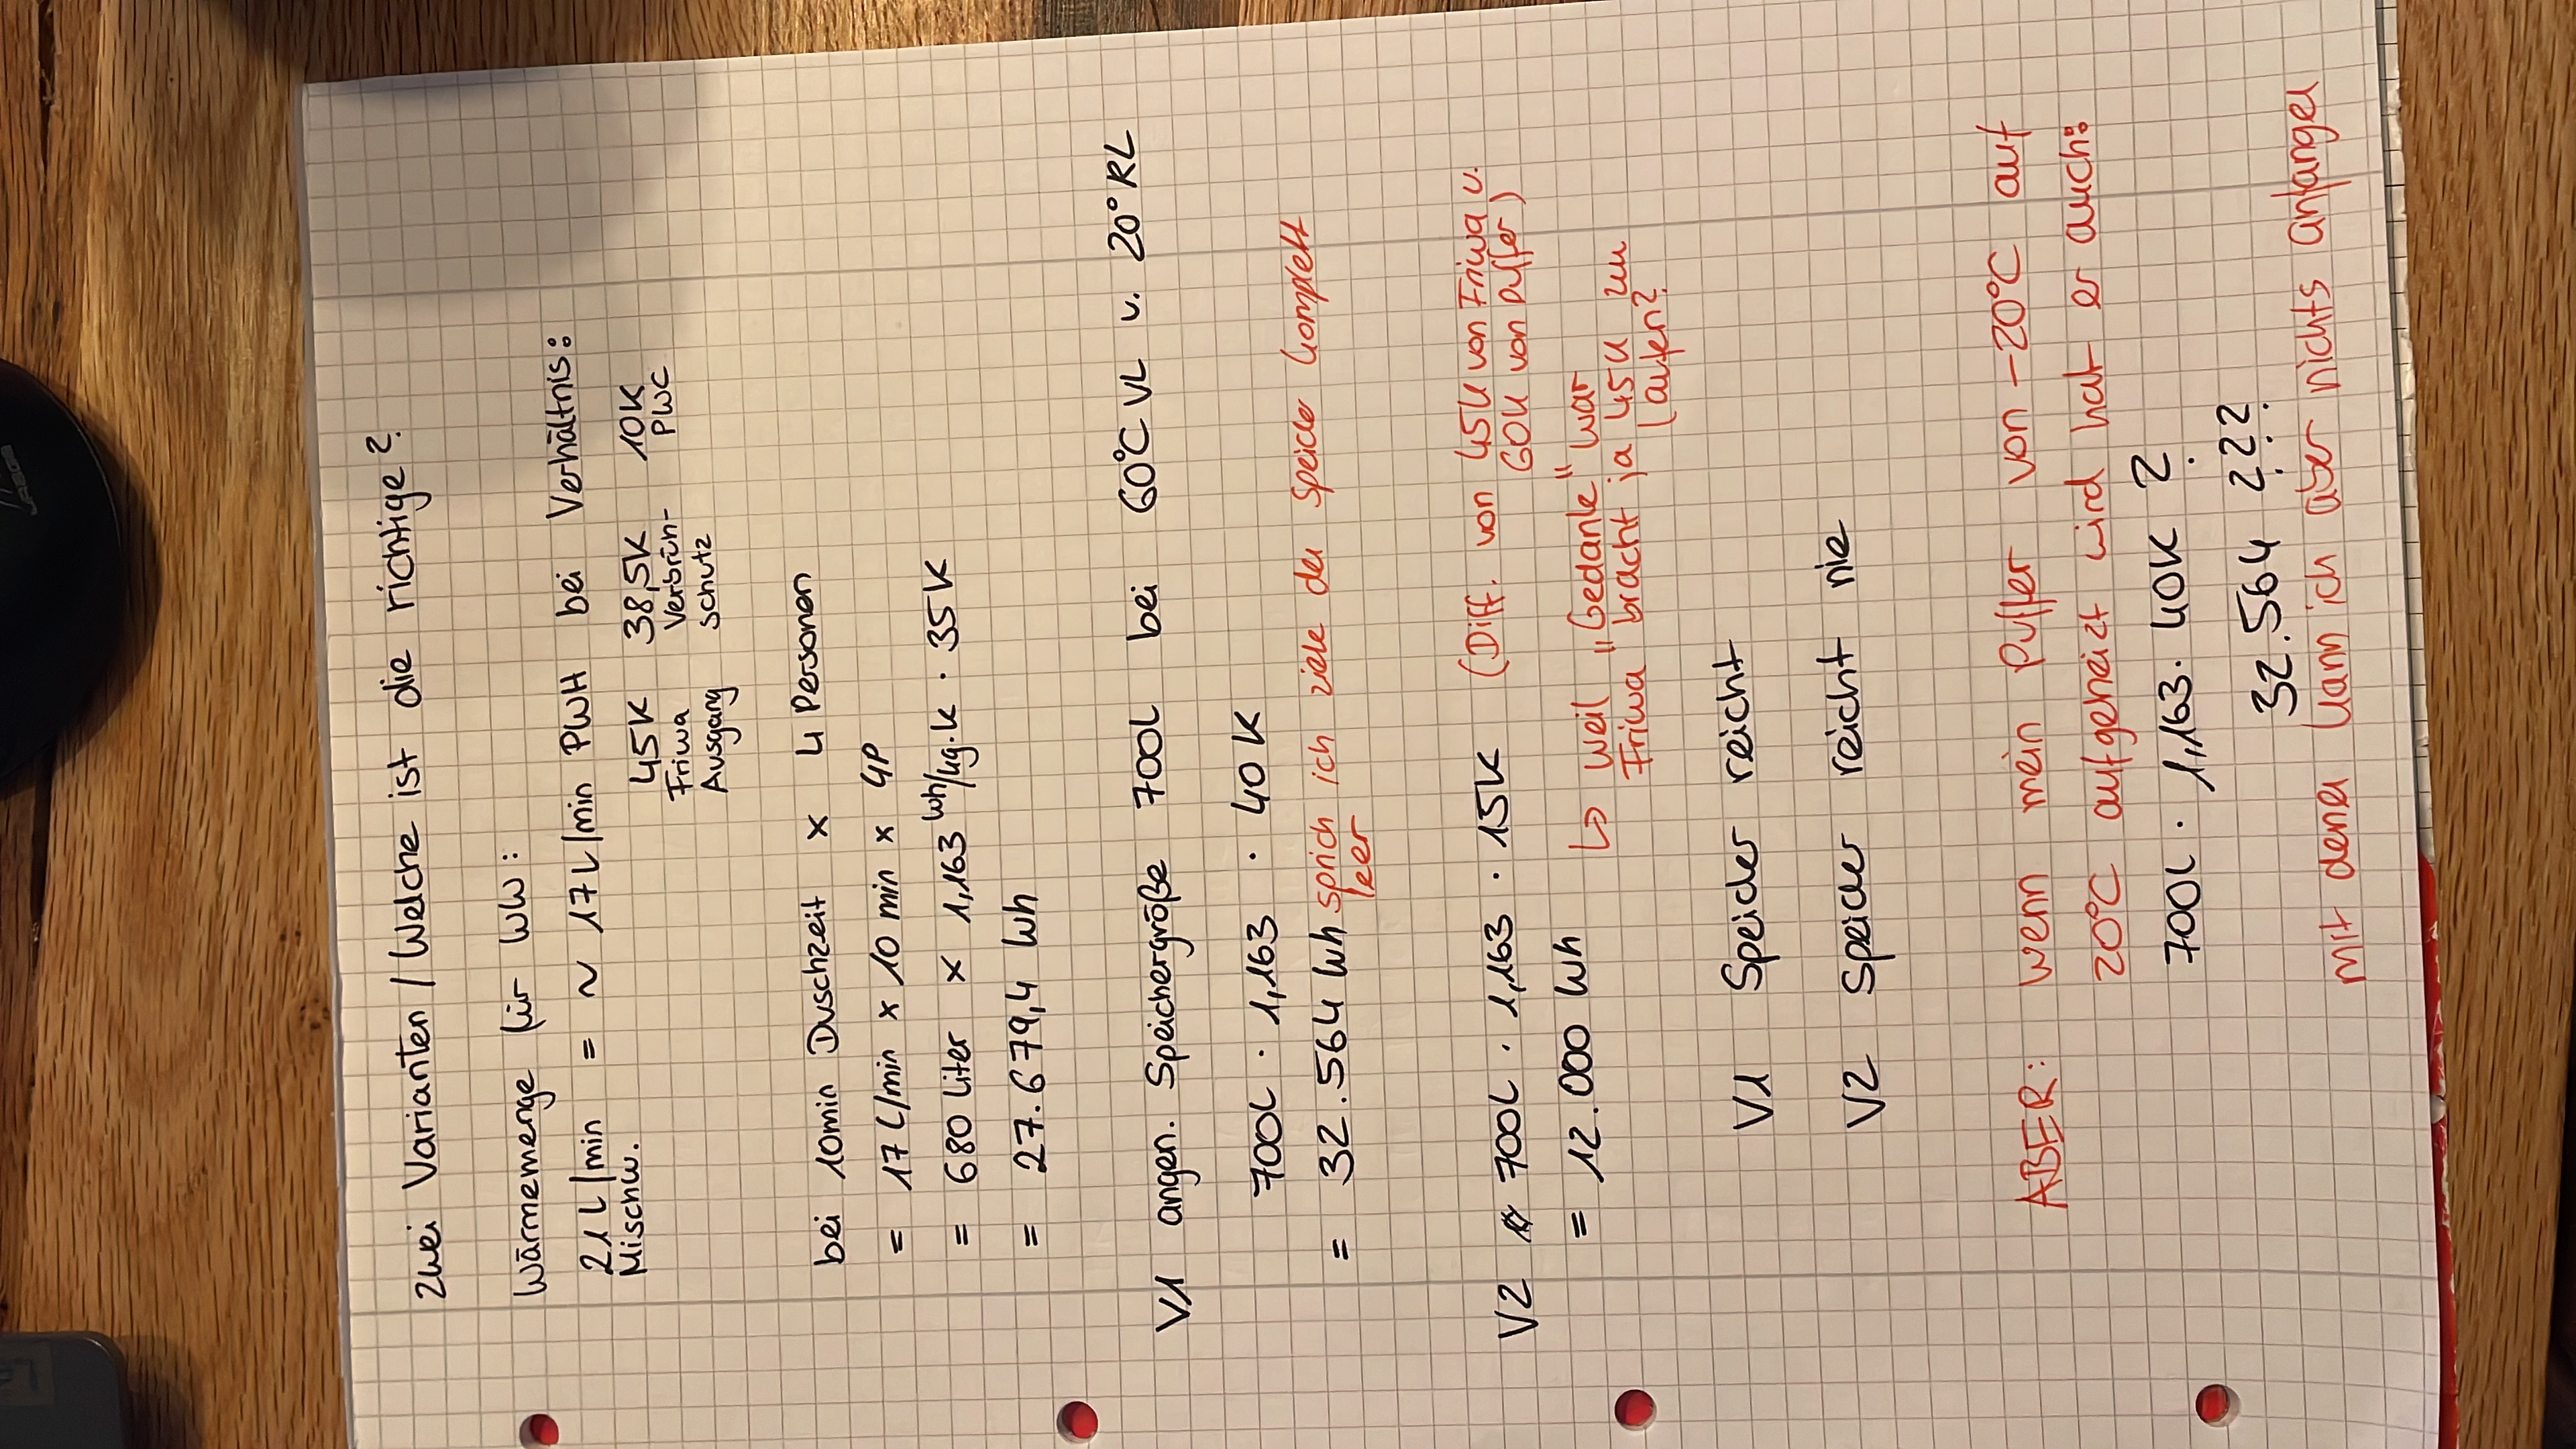 Zwei Varianten / Welche ist die richtige?
Wärmemenge für WW:
21 L/min = ~ 17 L/min PWH bei Verhältnis:
Mischw.
45K 38,5K 10K
Friwa Verbrüh- PWC
Ausgang schutz
bei 10min Duschzeit x 4 Personen
= 17 L/min x 10 min x 4P
= 680 Liter x 1,163 Wh/kg.K . 35K
= 27.679,4 Wh
V1 angen. Speichergröße 700L bei 60°C VL u. 20° RL
700L . 1,163 . 40K
= 32.564 Wh sprich ich ziehe den Speicher komplett
leer
V2 700L . 1,163 . 15K (Diff. von 45K von Friwa u.
60K von Puffer)
= 12.000 Wh ↳ weil "Gedanke" war
Friwa braucht ja 45K zum
laufen?
V1 Speicher reicht
V2 Speicher reicht nie
ABER: wenn mein Puffer von -20°C auf
20°C aufgeheizt wird hat er auch:
700L . 1,163 . 40K ?
32.564 ???
mit denen kann ich aber nichts anfangen